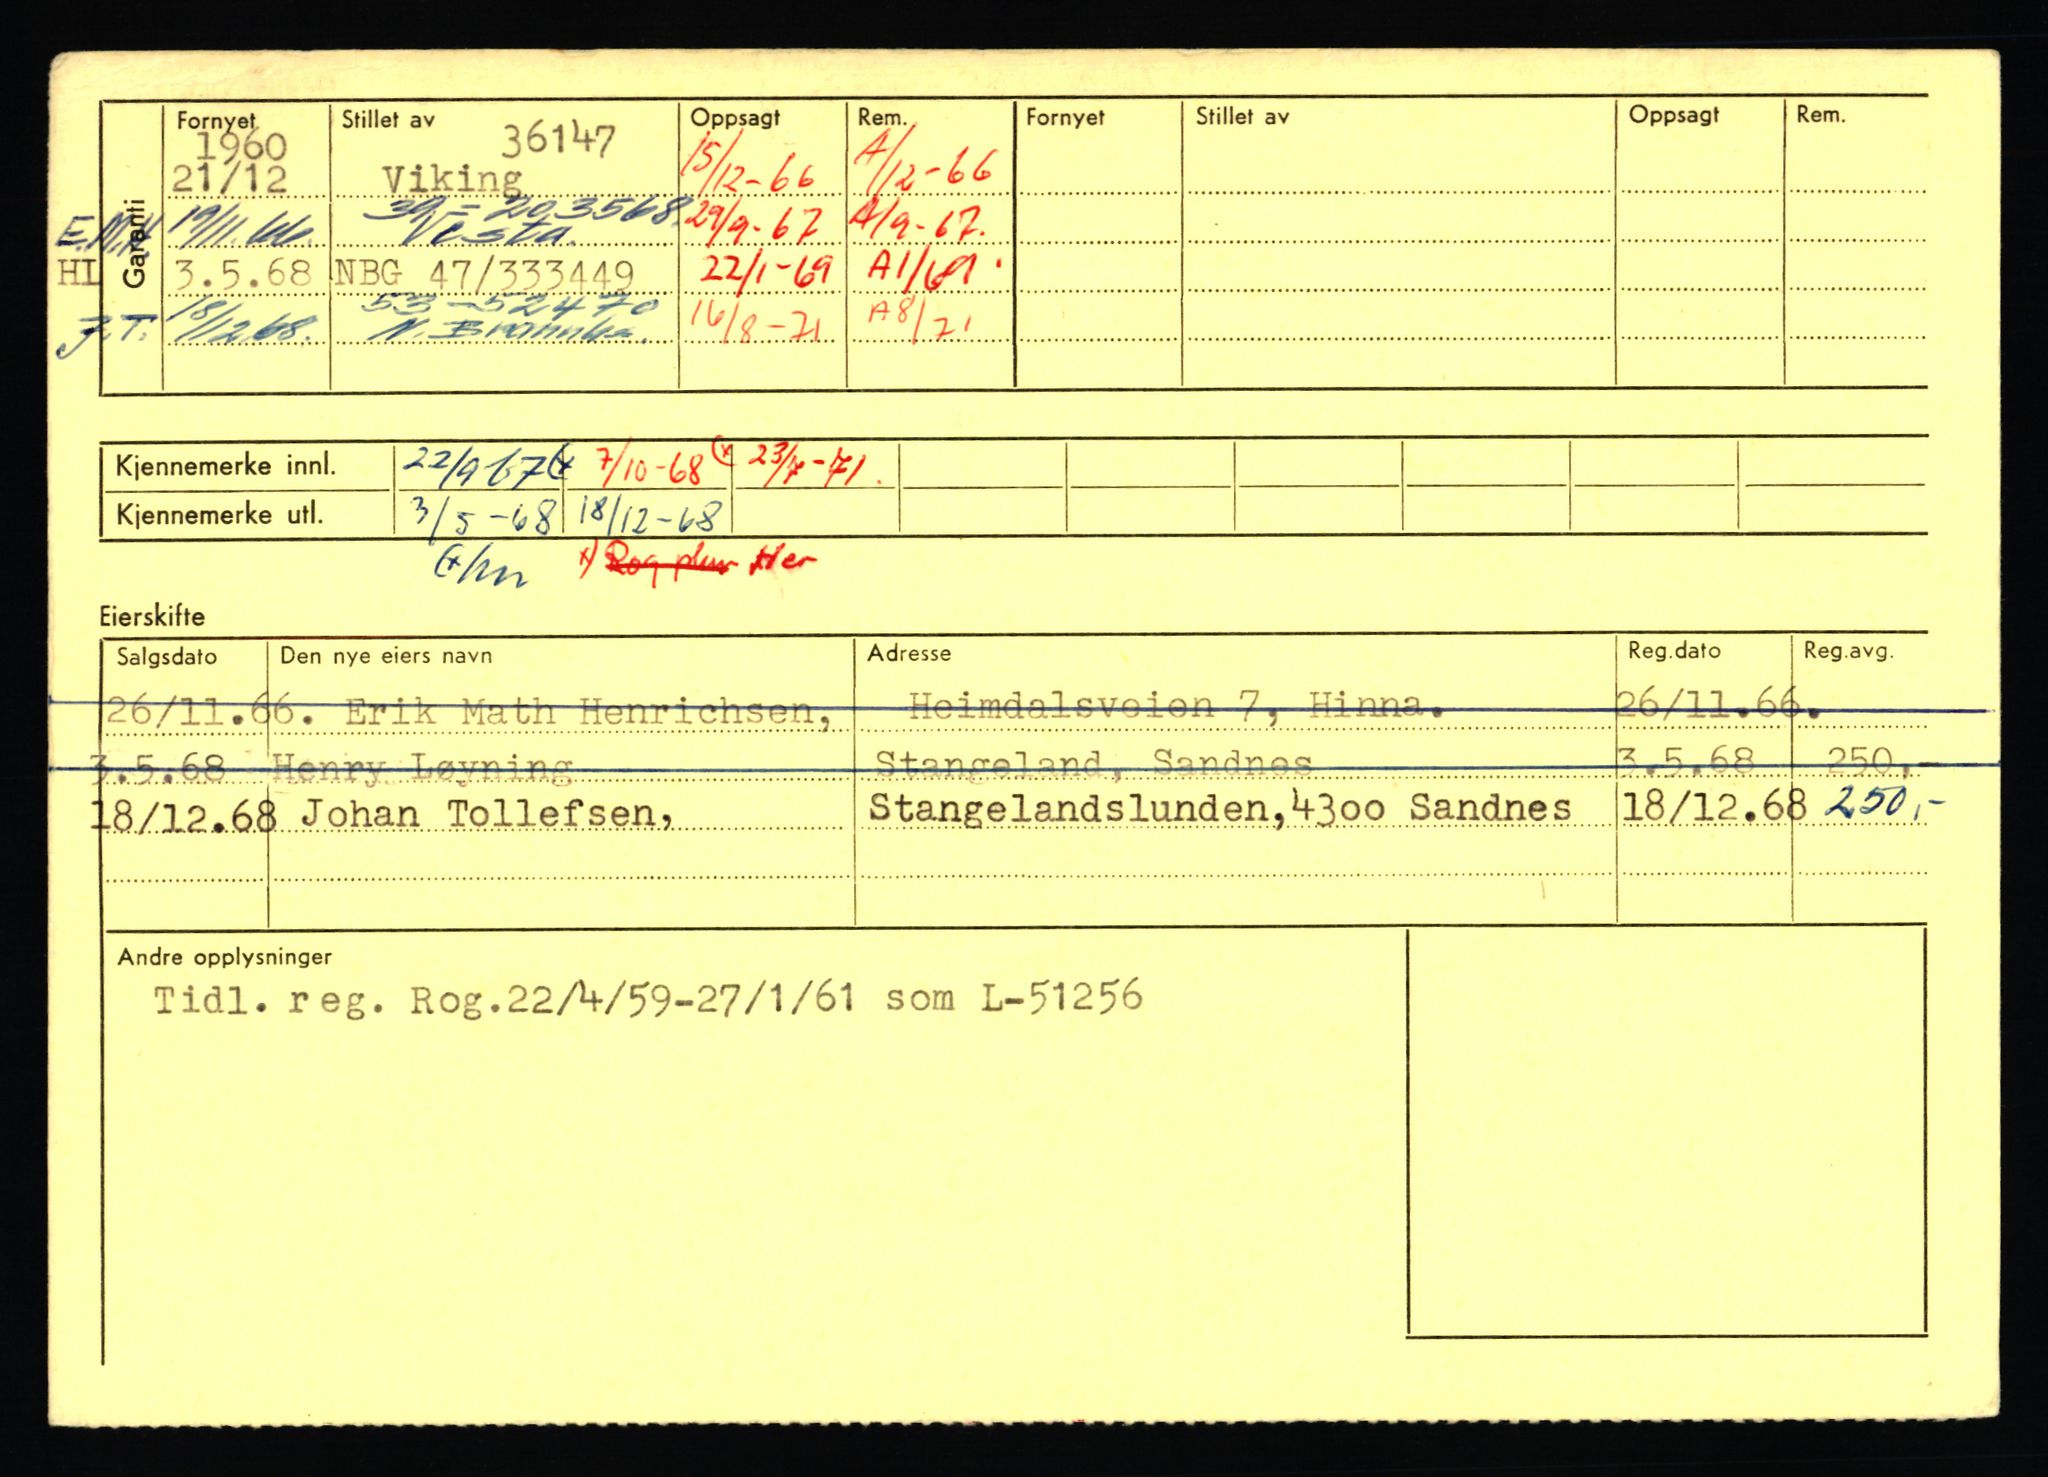 Garanti Fornyet Stillet av Oppsagt Rem. Fornyet Stillet av Oppsagt Rem.
1960 36147
21/12 Viking 15/12-66 A/12-66
39-203568
E.M.H 19/11.66. Vesta. 29/9-67 A/9-67.
HL 3.5.68 NBG 47/333449 22/1-69 A1/69
53-52470
J.T. 18/12.68. N. 16/8-71 A8/71
Kjennemerke innl. 22/9-67 (x 7/10-68 (x 23/7-71.
Kjennemerke utl. 3/5-68 18/12-68
(x x) Her
Eierskifte
Salgsdato Den nye eiers navn Adresse Reg.dato Reg.avg.
26/11.66. Erik Math Henrichsen, Heimdalsveien 7, Hinna. 26/11.66.
3.5.68 Henry Løyning Stangeland, Sandnes 3.5.68 250,-
18/12.68 Johan Tollefsen, Stangelandslunden,4300 Sandnes 18/12.68 250,-
Andre opplysninger
Tidl. reg. Rog.22/4/59-27/1/61 som L-51256